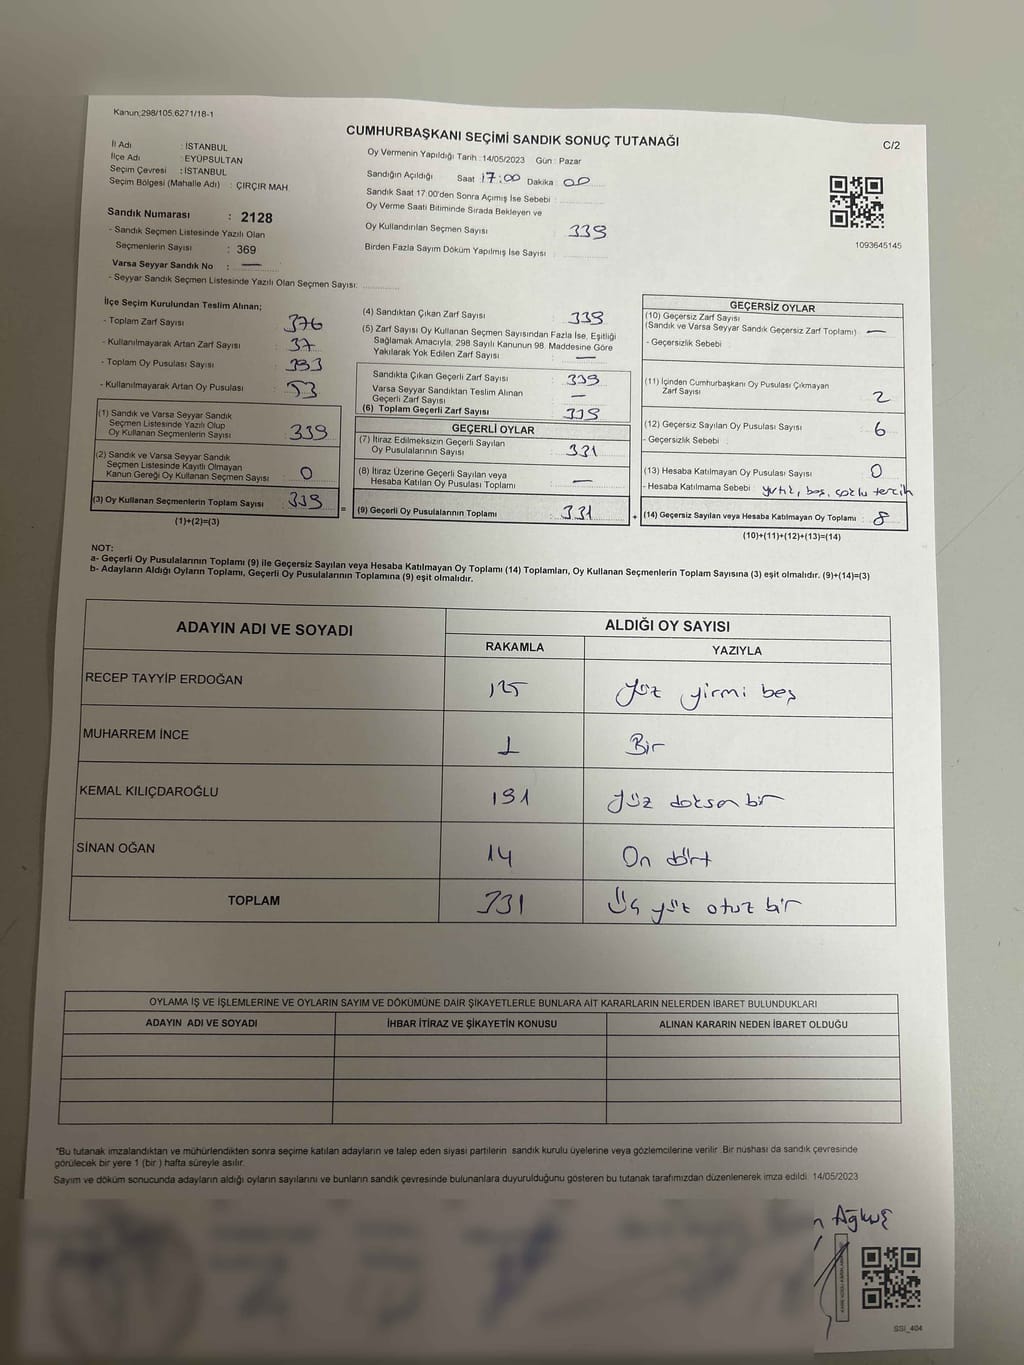 Kanun;298/105,6271/18-1
CUMHURBAŞKANI SEÇİMİ SANDIK SONUÇ TUTANAĞI
C/2
İl Adı : İSTANBUL
İlçe Adı : EYÜPSULTAN
Seçim Çevresi : İSTANBUL
Seçim Bölgesi (Mahalle Adı) : ÇIRÇIR MAH.
Oy Vermenin Yapıldığı Tarih :14/05/2023 Gün : Pazar
Sandığın Açıldığı Saat 17:00 Dakika : 00
Sandık Saat 17:00'den Sonra Açımış İse Sebebi :
Oy Verme Saati Bitiminde Sırada Bekleyen ve
Oy Kullandırılan Seçmen Sayısı 339
Birden Fazla Sayım Döküm Yapılmış İse Sayısı
1093645145
Sandık Numarası : 2128
- Sandık Seçmen Listesinde Yazılı Olan
Seçmenlerin Sayısı : 369
Varsa Seyyar Sandık No : —
- Seyyar Sandık Seçmen Listesinde Yazılı Olan Seçmen Sayısı:
İlçe Seçim Kurulundan Teslim Alınan;
- Toplam Zarf Sayısı : 376
- Kullanılmayarak Artan Zarf Sayısı : 37
- Toplam Oy Pusulası Sayısı : 393
- Kullanılmayarak Artan Oy Pusulası : 53
(1) Sandık ve Varsa Seyyar Sandık
Seçmen Listesinde Yazılı Olup
Oy Kullanan Seçmenlerin Sayısı : 339
(2) Sandık ve Varsa Seyyar Sandık
Seçmen Listesinde Kayıtlı Olmayan
Kanun Gereği Oy Kullanan Seçmen Sayısı : 0
(3) Oy Kullanan Seçmenlerin Toplam Sayısı : 339
(1)+(2)=(3)
(4) Sandıktan Çıkan Zarf Sayısı : 339
(5) Zarf Sayısı Oy Kullanan Seçmen Sayısından Fazla İse, Eşitliği
Sağlamak Amacıyla, 298 Sayılı Kanunun 98. Maddesine Göre
Yakılarak Yok Edilen Zarf Sayısı : —
Sandıkta Çıkan Geçerli Zarf Sayısı : 339
Varsa Seyyar Sandıktan Teslim Alınan
Geçerli Zarf Sayısı : —
(6) Toplam Geçerli Zarf Sayısı : 339
GEÇERLİ OYLAR
(7) İtiraz Edilmeksizin Geçerli Sayılan
Oy Pusulalarının Sayısı : 331
(8) İtiraz Üzerine Geçerli Sayılan veya
Hesaba Katılan Oy Pusulası Toplamı : —
= (9) Geçerli Oy Pusulalarının Toplamı : 331 +
GEÇERSİZ OYLAR
(10) Geçersiz Zarf Sayısı
(Sandık ve Varsa Seyyar Sandık Geçersiz Zarf Toplamı) : —
- Geçersizlik Sebebi :
(11) İçinden Cumhurbaşkanı Oy Pusulası Çıkmayan
Zarf Sayısı : 2
(12) Geçersiz Sayılan Oy Pusulası Sayısı : 6
- Geçersizlik Sebebi :
(13) Hesaba Katılmayan Oy Pusulası Sayısı : 0
- Hesaba Katılmama Sebebi : yırtık, boş, çoklu tercih
(14) Geçersiz Sayılan veya Hesaba Katılmayan Oy Toplamı : 8
(10)+(11)+(12)+(13)=(14)
NOT:
a- Geçerli Oy Pusulalarının Toplamı (9) ile Geçersiz Sayılan veya Hesaba Katılmayan Oy Toplamı (14) Toplamları, Oy Kullanan Seçmenlerin Toplam Sayısına (3) eşit olmalıdır. (9)+(14)=(3)
b- Adayların Aldığı Oyların Toplamı, Geçerli Oy Pusulalarının Toplamına (9) eşit olmalıdır.
ADAYIN ADI VE SOYADI ALDIĞI OY SAYISI
RAKAMLA YAZIYLA
RECEP TAYYİP ERDOĞAN 125 yüz yirmi beş
MUHARREM İNCE 1 Bir
KEMAL KILIÇDAROĞLU 191 yüz doksan bir
SİNAN OĞAN 14 On dört
TOPLAM 331 Üç yüz otuz bir
OYLAMA İŞ VE İŞLEMLERİNE VE OYLARIN SAYIM VE DÖKÜMÜNE DAİR ŞİKAYETLERLE BUNLARA AİT KARARLARIN NELERDEN İBARET BULUNDUKLARI
ADAYIN ADI VE SOYADI İHBAR İTİRAZ VE ŞİKAYETİN KONUSU ALINAN KARARIN NEDEN İBARET OLDUĞU
*Bu tutanak imzalandıktan ve mühürlendikten sonra seçime katılan adayların ve talep eden siyasi partilerin sandık kurulu üyelerine veya gözlemcilerine verilir. Bir nüshası da sandık çevresinde
görülecek bir yere 1 (bir ) hafta süreyle asılır.
Sayım ve döküm sonucunda adayların aldığı oyların sayılarını ve bunların sandık çevresinde bulunanlara duyurulduğunu gösteren bu tutanak tarafımızdan düzenlenerek imza edildi. 14/05/2023
SSI_404